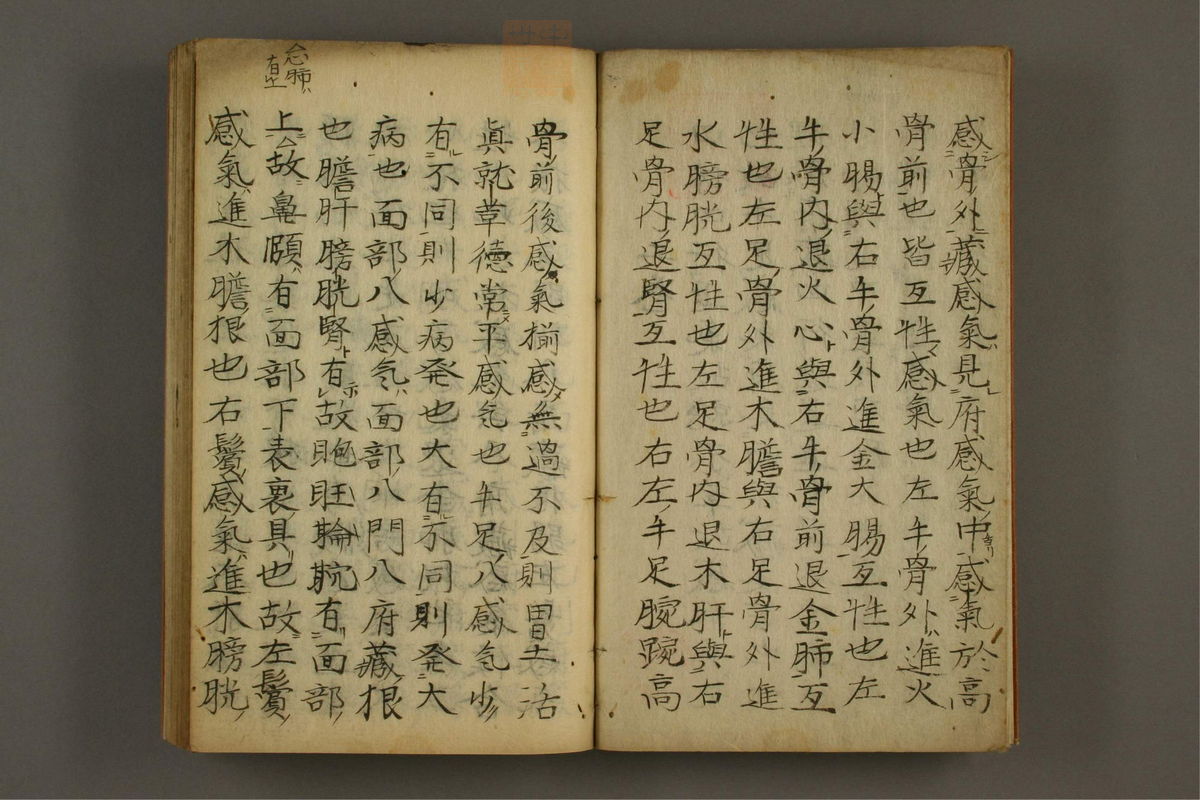 感骨外藏感氣見府感氣中感氣於高
骨前也皆互性感氣也左手骨外進火
小腸與右手骨外進金大腸互性也左
手骨内退火心與右手骨前退金肺互
性也左足骨外進木膽與右足骨外進
水膀胱互性也左足骨内退木肝與右
足骨内退腎互性也右左手足腕踠高
骨前後感氣揃感無過不及則胃土活
眞就葦徳常平感気也手足八感気少
有不同則少病発也大有不同則発大
病也面部八感気面部八門八府藏根
也膽肝膀胱腎有故
有面部
上故鼻頤有面部下表裏具也故左鬢
感氣進木膽根也右鬢感氣進木膀
胱